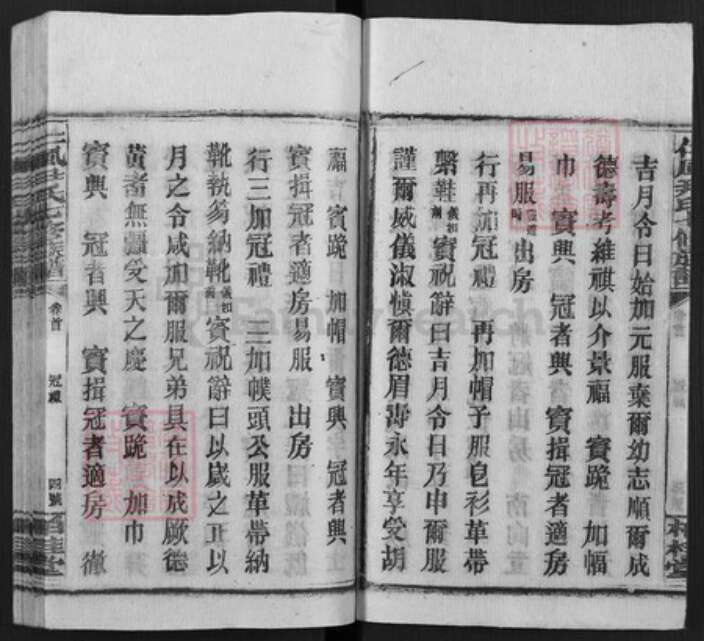 吉月令日始加元服棄爾幼志順爾成
德壽考維祺以介景福 賓跪 加幅
巾 賓興 冠者興 賓揖冠者適房
易服 出房
行再加冠禮 再加帽子服皂衫革帶
繫鞋 賓祝辭曰吉月令日乃申爾服
謹爾威儀淑慎爾德眉壽永年享受胡
福 賓跪 加帽 賓興 冠者興
賓揖冠者適房易服 出房
行三加冠禮 三加幞頭公服革帶納
靴執笏納靴 賓祝辭曰以歲之正以
月之令咸加爾服兄弟具在以成厥德
黃耇無疆受天之慶 賓跪 加巾
賓興 冠者興 賓揖冠者適房 徹
尹氏七修族譜
卷首
冠禮
四號
桂堂